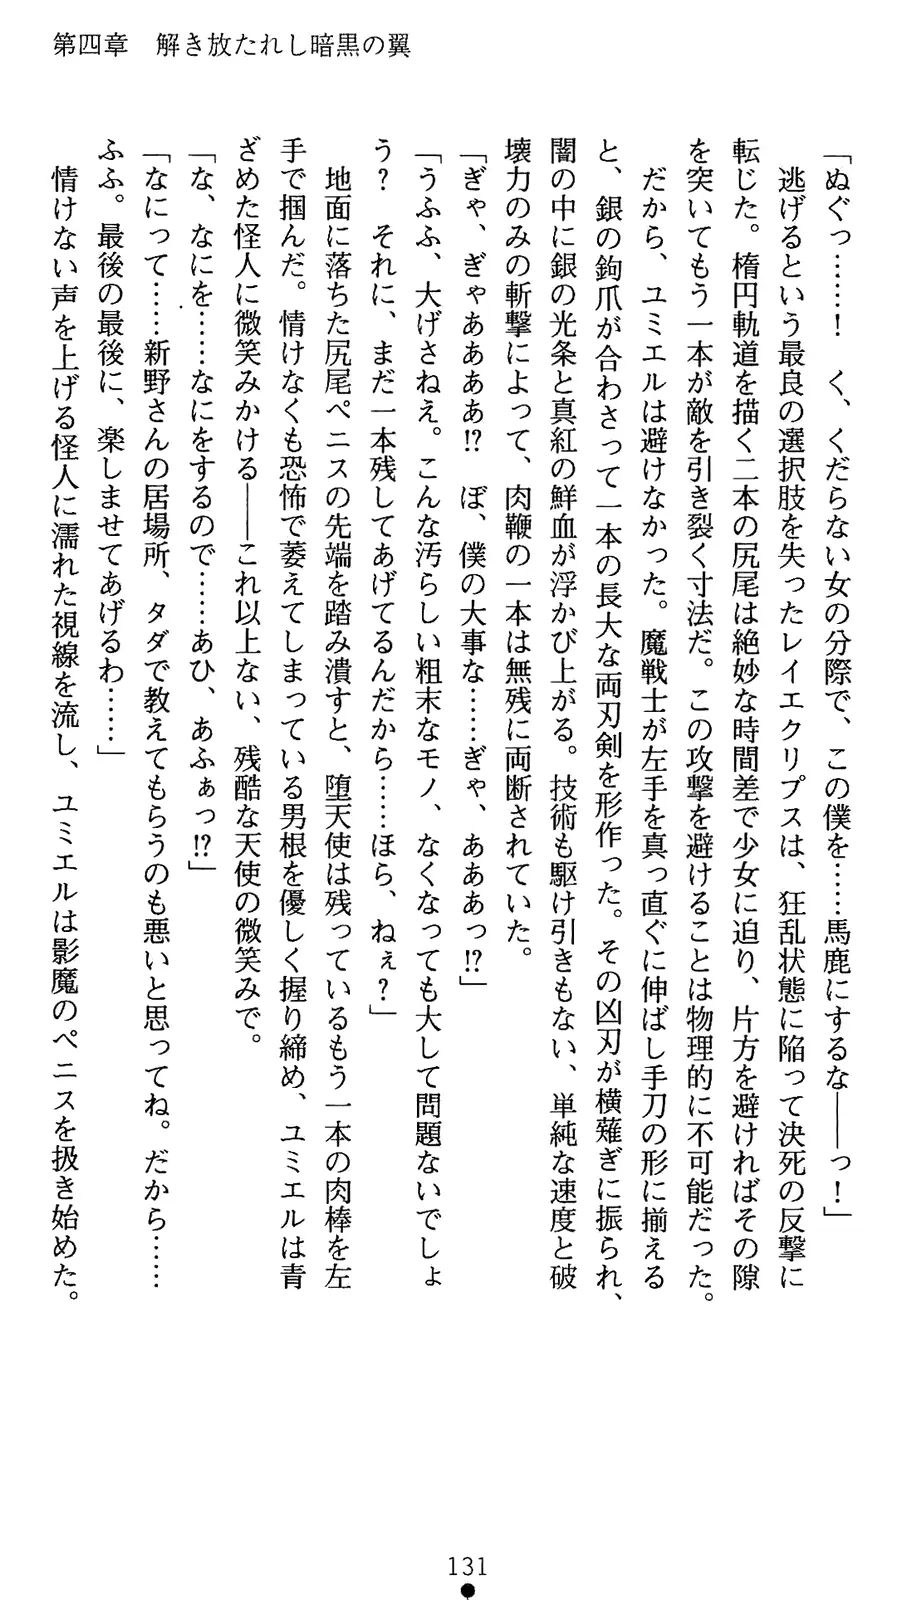 第四章　解き放たれし暗黒の翼
「ぬぐっ……！　く、くだらない女の分際で、この僕を……馬鹿にするな――っ！」
　逃げるという最良の選択肢を失ったレイエクリプスは、狂乱状態に陥って決死の反撃に
転じた。楕円軌道を描く二本の尻尾は絶妙な時間差で少女に迫り、片方を避ければその隙
を突いてもう一本が敵を引き裂く寸法だ。この攻撃を避けることは物理的に不可能だった。
　だから、ユミエルは避けなかった。魔戦士が左手を真っ直ぐに伸ばし手刀の形に揃える
と、銀の鉤爪が合わさって一本の長大な両刃剣を形作った。その凶刃が横薙ぎに振られ、
闇の中に銀の光条と真紅の鮮血が浮かび上がる。技術も駆け引きもない、単純な速度と破
壊力のみの斬撃によって、肉鞭の一本は無残に両断されていた。
「ぎゃ、ぎゃああああ!?　ぼ、僕の大事な……ぎゃ、あああっ!?」
「うふふ、大げさねえ。こんな汚らしい粗末なモノ、なくなっても大して問題ないでしょ
う？　それに、まだ一本残してあげてるんだから……ほら、ねぇ？」
　地面に落ちた尻尾ペニスの先端を踏み潰すと、堕天使は残っているもう一本の肉棒を左
手で掴んだ。情けなくも恐怖で萎えてしまっている男根を優しく握り締め、ユミエルは青
ざめた怪人に微笑みかける――これ以上ない、残酷な天使の微笑みで。
「な、なにを……なにをするので……あひ、あふぁっ!?」
「なにって……新野さんの居場所、タダで教えてもらうのも悪いと思ってね。だから……
ふふ。最後の最後に、楽しませてあげるわ……」
　情けない声を上げる怪人に濡れた視線を流し、ユミエルは影魔のペニスを扱き始めた。
131